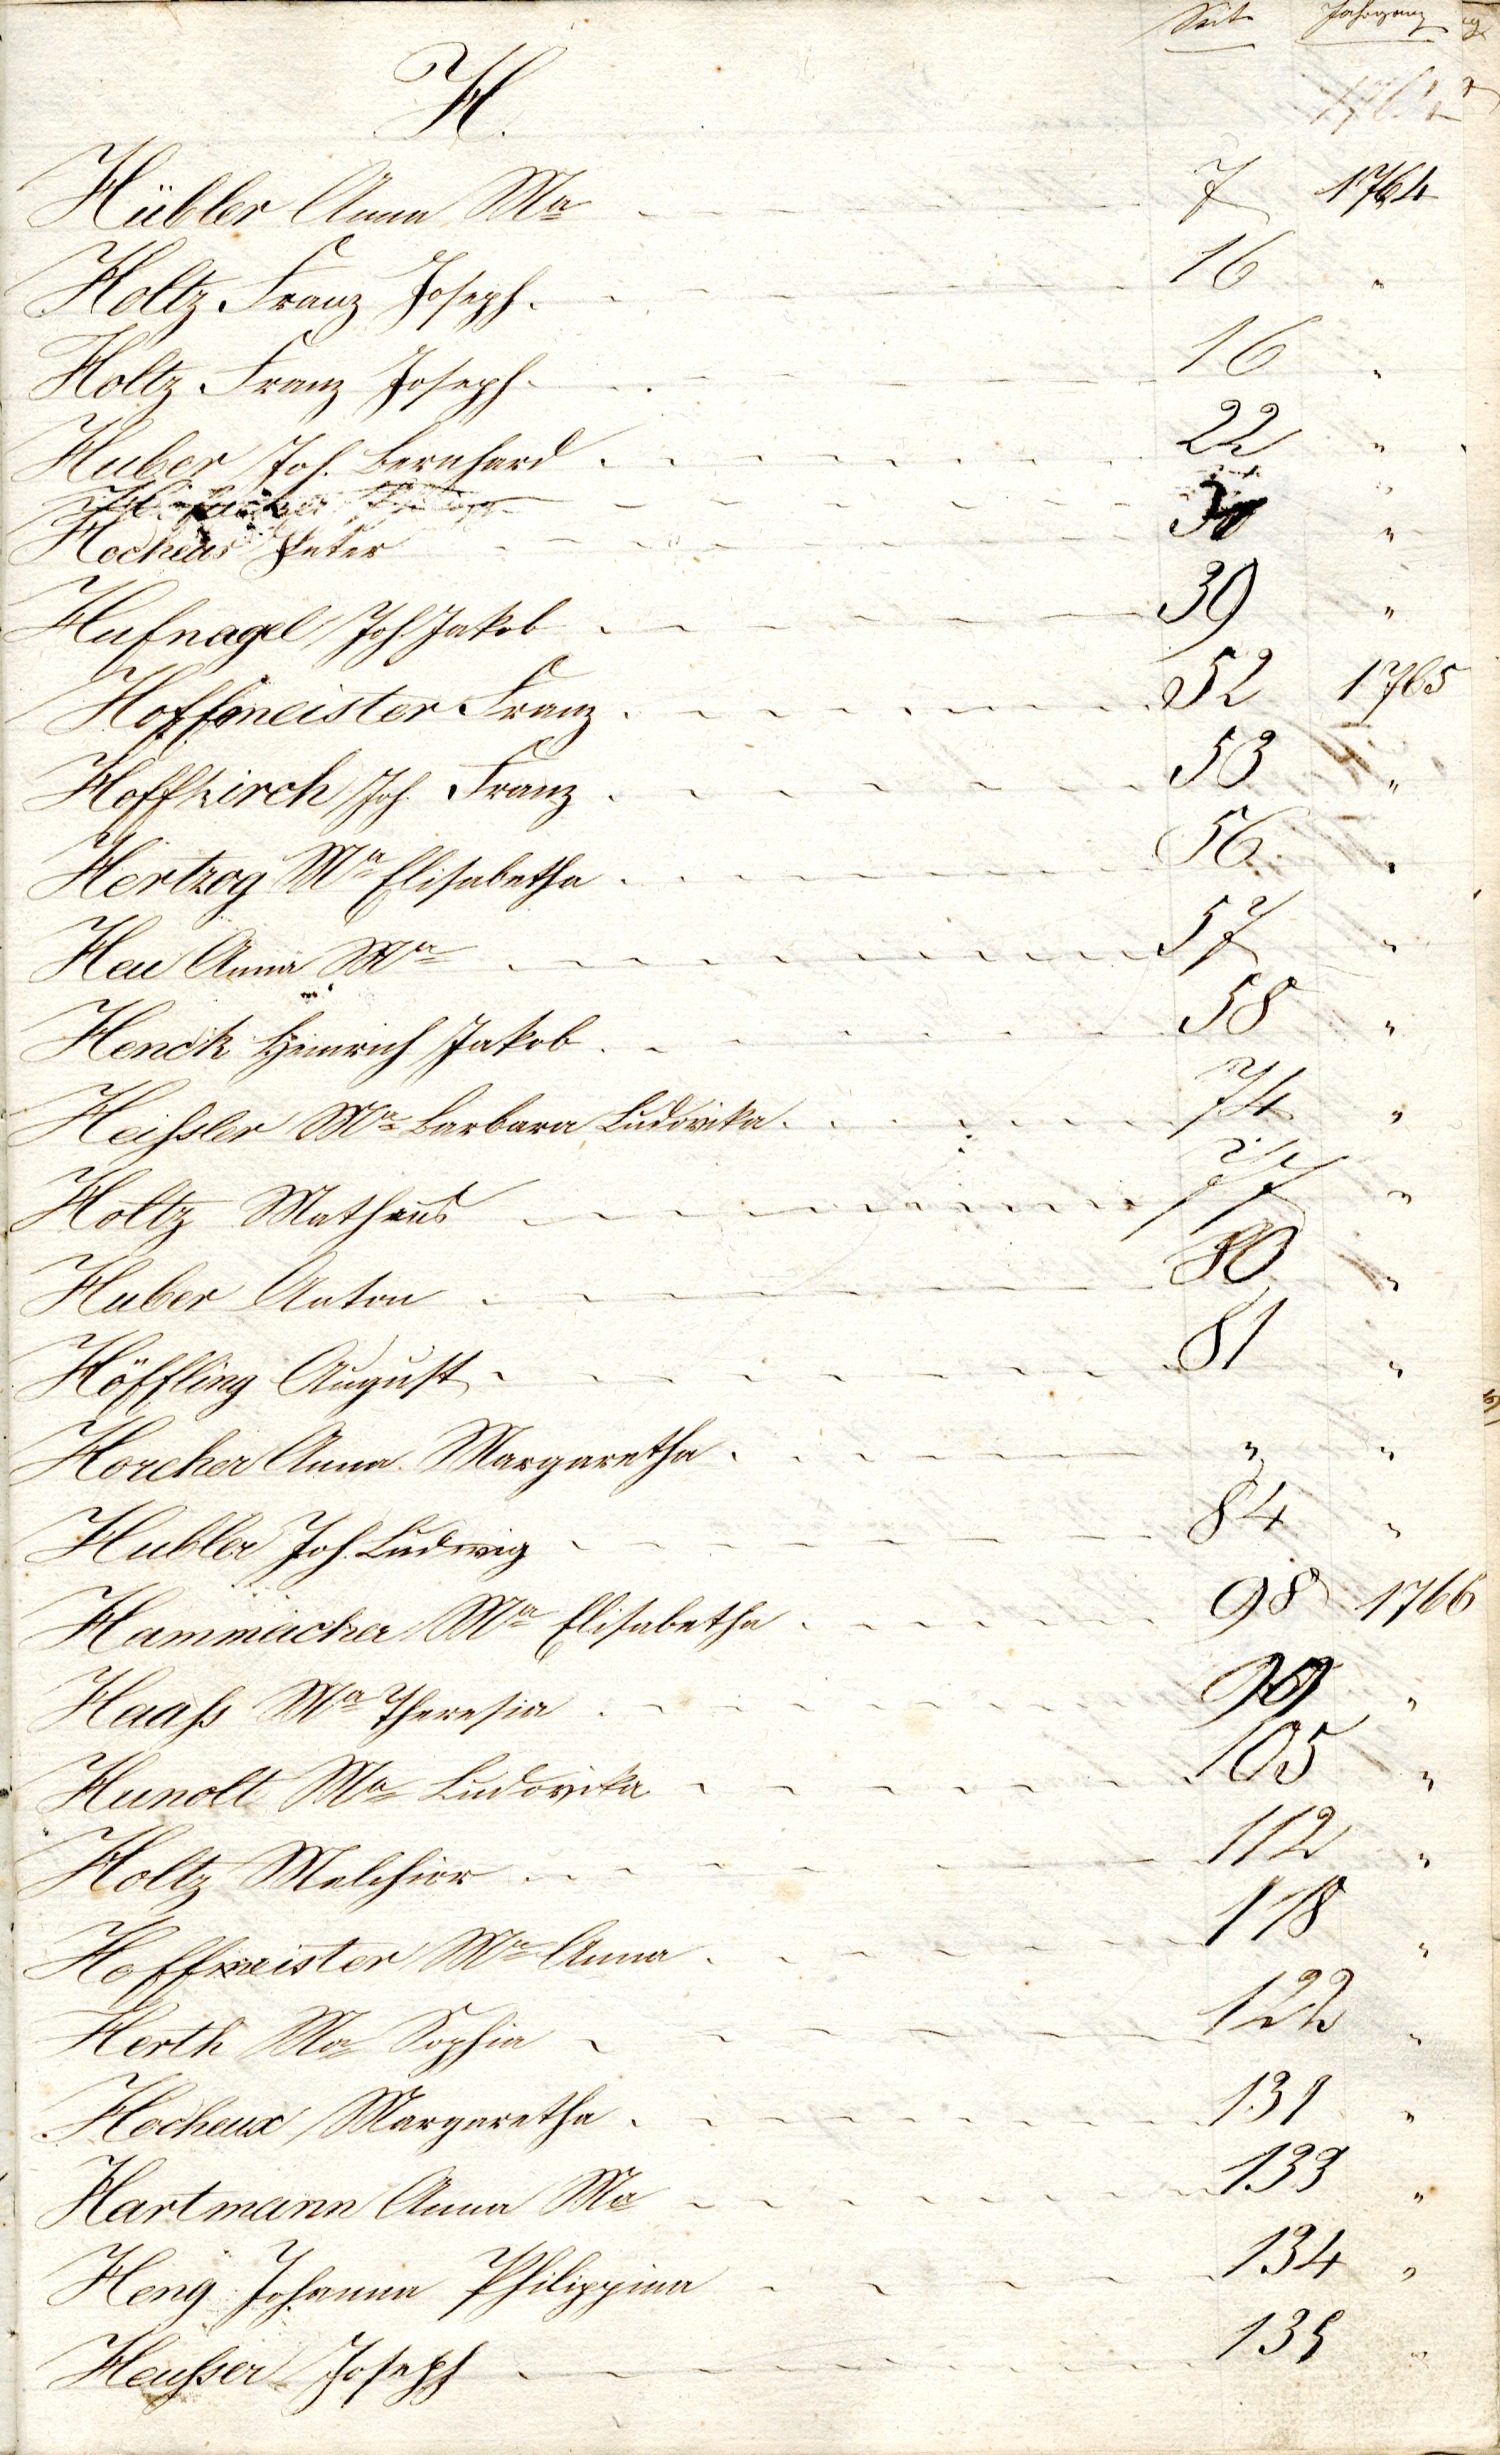 Seite Jahrgang
H.
Hübler Anna Ma 7 1764
Holtz Franz Joseph. 16 "
Holtz Franz Joseph. 16 "
Huber Joh. Bernhard 22 "
Hocheus Peter 30 "
Hufnagel Joh Jakob 39 "
Hoffmeister Franz 52 1765
Hoffkirch Joh. Franz 53 "
Hertzog Ma Elisabetha 56 "
Heu Anna Ma 57 "
Henck Heinrich Jakob 58 "
Heißler Ma Barbara Ludovika 74 "
Holtz Matheus 77 "
Huber Anton 80 "
Höffling August 81 "
Horcher Anna Margaretha " "
Hubler Joh. Ludwig 84 "
Hammacher Ma Elisabetha 98 1766
Haaß Ma Theresia 99 "
Hunolt Ma Ludovika 105 "
Holtz Melchior 112 "
Hoffmeister Ma Anna 118 "
Herth Ma Sophia 122 "
Hocheux Margaretha 131 "
Hartmann Anna Ma 133 "
Heng Johanna Philippina 134 "
Heußer Joseph 135 "